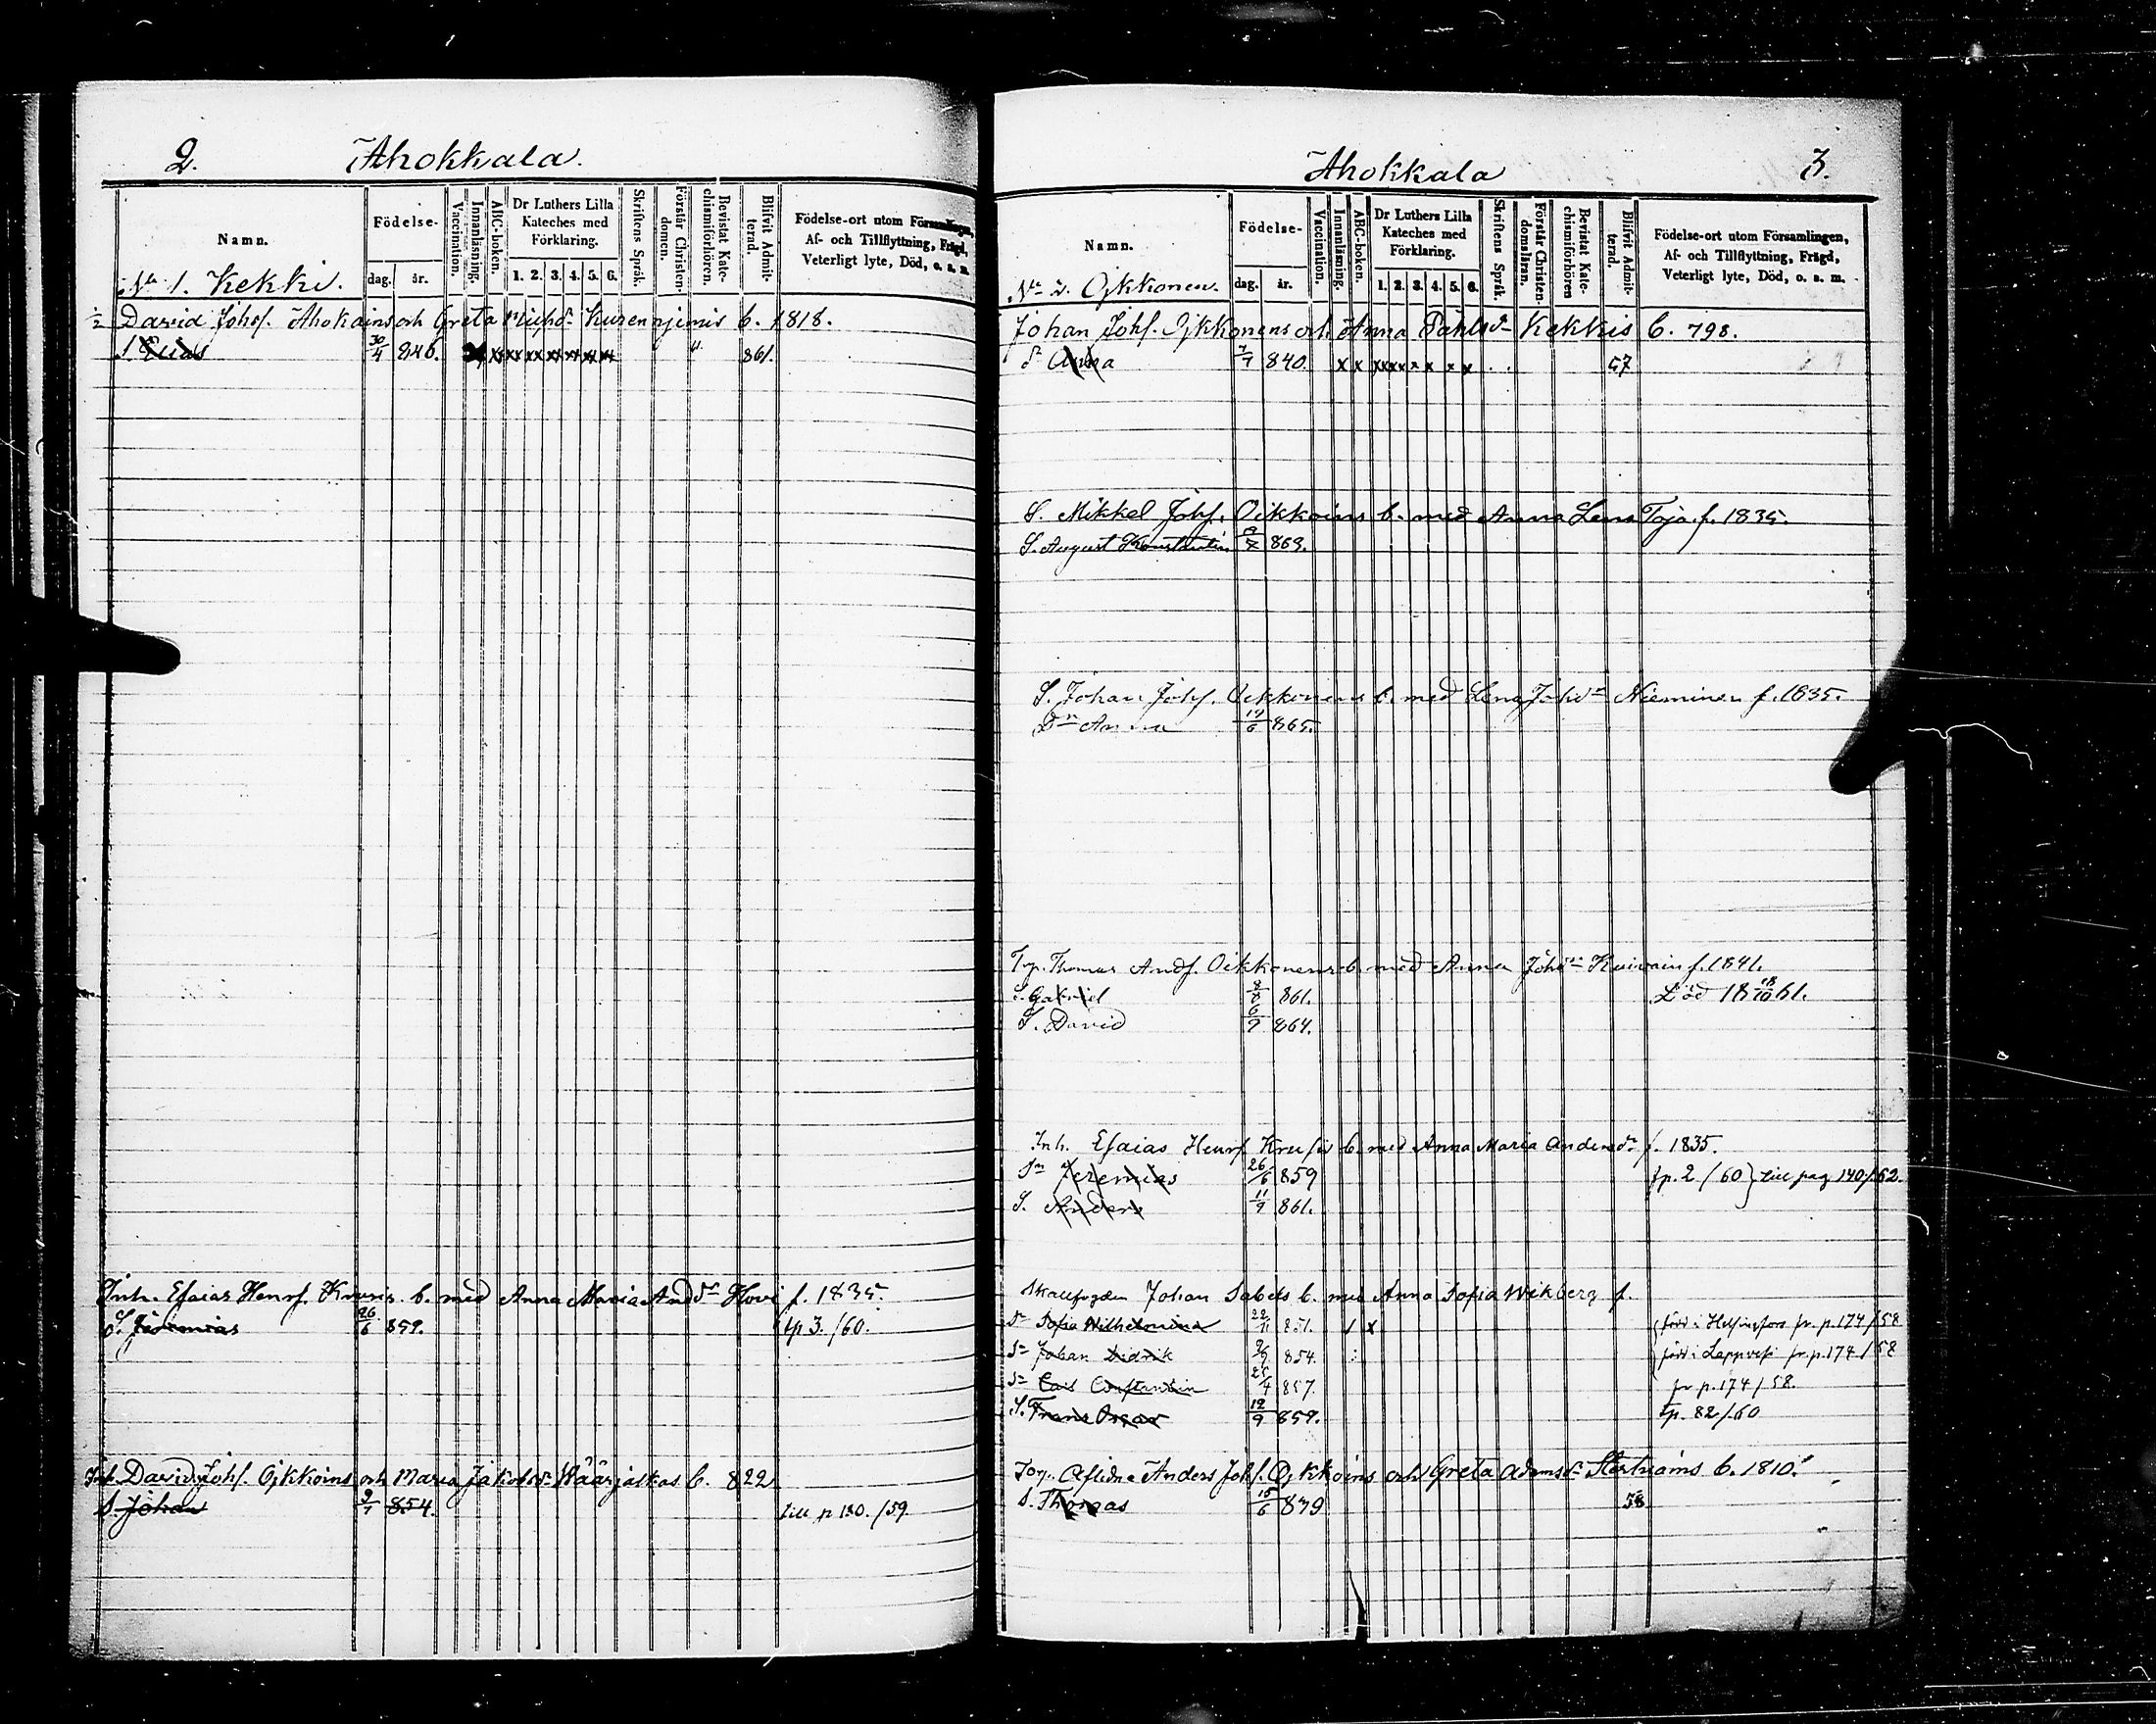 2. Ahokkala.
Namn.
Födelse-
dag. år.
Vaccination.
Innanläsning.
ABC-boken.
Dr Luthers Lilla Kateches med Förklaring.
1. 2. 3. 4. 5. 6.
Skriftens Språk.
Förstår Christen-domen.
Bevistat Kate-chismiförhören.
Blifvit Admit-terad.
Födelse-ort utom Församlingen, Af- och Tillflyttning, Frägd, Veterligt lyte, Död, o. s. m.
No 1. Kekki.
1/2 David Johs. Ahokains och Greta b. 1818.
S Elias 30/4 846. 861.
Inh. Esaias Henrs. b. med Anna Maria Andsdr Hovi f. 1835.
S. Jeremias 26/6 859. tp 3./60.
Inh. David Johs. Ojkkoins och Maria Jakobsdr Määrjalkas b. 822
S. Johan 9/7 854. till p 130./59.
Ahokkala 3.
Namn.
Födelse-
dag. år.
Vaccination.
Innanläsning.
ABC-boken.
Dr Luthers Lilla Kateches med Förklaring.
1. 2. 3. 4. 5. 6.
Skriftens Språk.
Förstår Christen-domsläran.
Bevistat Kate-chismiförhören
Blifvit Admit-terad.
Födelse-ort utom Församlingen, Af- och Tillflyttning, Frägd, Veterligt lyte, Död, o. s. m.
No 2. Ojkkonen.
Johan Johs. Ojkkonens och Anna Påhlsdr Kekkis b. 798.
dr Anna 7/7 840. x x xx xx x x x x 57
S. Mikkel Johs. Oikkoins b. med Anna Lena Toja f. 1835.
S. August Konstantin 863.
S. Johan Johs. Oikkonens b. med Lena Johdr Nieminen f. 1835.
Dr Anna 19/6 865.
Thomas Ands. Oikkonens b. med Anna Johdr Kuivain f. 1841.
S. Gabriel 8/8 861. Död 18 18/10 61.
S. David 6/9 864.
Inh. Esaias Henrs Krusis b. med Anna Maria Andersdr f. 1835.
Sn Jeremias 26/6 859 fp. 2 /60 } till pag 140/62.
S. Anders 11/9 861.
Skallfogden Johan Sabels b. med Anna Sofia Wikberg f.
dr Sofia Wilhelmina 22/11 851. / x född i Helsingfors fr. p. 174/58
Sn Johan Didrik 9/9 854. född i Lappvesi fr. p. 174/58
Sn Constantin 25/4 857. fr p. 174/58.
S. Frans Oscar 12/9 859. tp. 82/60
Aflidne Anders Johs. Ojkkoins och Greta Adamsdr b. 1810.
S. Thomas 15/6 839 58